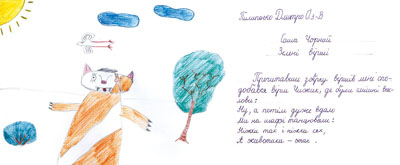 Пилипенко Дмитро 03-В
Саша Чорний
Зелені вірші
Прочитавши збірку віршів мені спо-
добався вірш Чижик, де були смішні вис-
лови:
Ну, а потім дуже вдало
Ми на шафі танцювали:
Ніжки так і ніжки сяк,
А животики - отак.